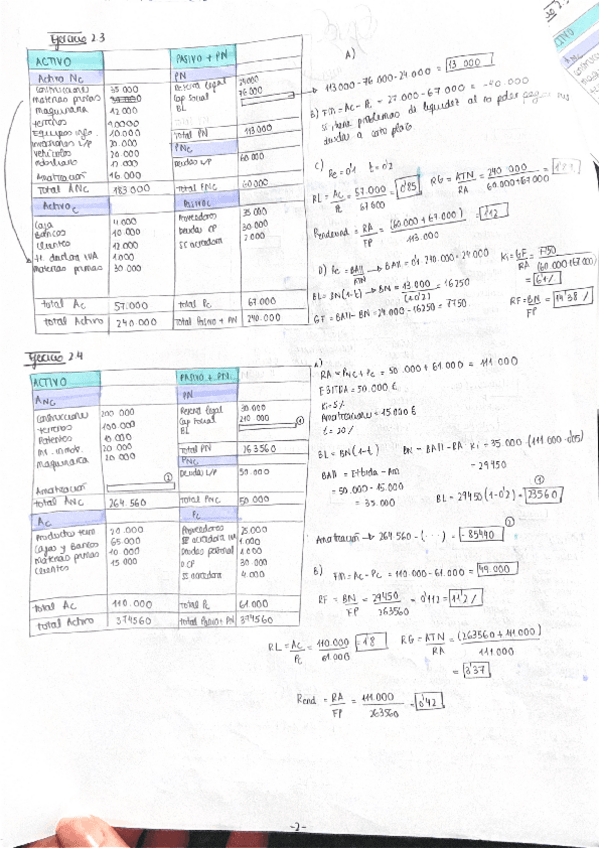 Ejercicio 2.3
ACTIVO
PASIVO + PN
Activo NC
PN
Construcciones 35 000
Reserva legal 24000
maquinaria 12 000
Cap Social 76 000
terrenos
BL
Equipos info. 10.000
Total PN 113000
inversiones L/P 20 000
PNC
vehículos 20.000
Deudas L/P 60 000
mobiliario
Amortización 16 000
Total ANC 183 000
Total PNC 60.000
Activo C
PASIVO C
Caja
Proveedores 35 000
Bancos 10 000
Deudas CP 30.000
Clientes 12 000
SS acreedora 2 000
H. deudora IVA 1.000
materias primas 30 000
Total AC 57.000
Total PC 67.000
Total Activo 240.000
Total Pasivo + PN 240.000
A)
113000 - 76 000 - 24 000 = 13 000
B) FM = AC - PC = 57 000 - 67 000 =
Si tiene problemas de liquidez al no poder pagar sus
deudas a corto plazo
C) Re = 0'1 t = 0'2
RL = AC/PC = 57.000/67 000 = 0'85
RG = ATN/RA = 240 000/60.000+67000 =
Rendeund = RA/FP = (60 000 + 67 000)/113.000 = 1'12
D) Re = BAII/ATN → BAII = 0'1 · 240.000 = 24 000
BL = BN(1-t) → BN = 13 000/(1-0'2) = 16250
GF = BAII - BN = 24.000 - 16250 = 7750
Ki = GF/RA = 7750/(60 000+67 000) = 6'1%
RF = BN/FP = 14'38 %
Ejercicio 2.4
ACTIVO
PASIVO + PN
ANC
PN
Construcciones 200 000
Reserva legal 30.000
terrenos 100 000
Cap Social 210 000
Patentes 10 000
BL ①
Inv. inmob. 20 000
Total PN 263560
maquinaria 20 000
PNC
Deudas L/P 50.000
Amortización ②
Total ANC 264.560
Total PNC 50 000
AC
PC
Producto term 20.000
Proveedores 25.000
Cajas y Bancos 65 000
SS acreedora IVA 1.000
Materias primas 10 000
Deudas personal 1.000
Clientes 15 000
DCP 30 000
SS acreedora 4.000
Total AC 110.000
Total PC 61.000
Total Activo 374560
Total Pasivo + PN 374560
A)
RA = PNC + PC = 50.000 + 61 000 = 111 000
EBITDA = 50.000 €
Ki = 5%
Amortizaciones = 15000 €
t = 20%
BL = BN(1-t) BN = BAII - RA · Ki = 35 000 - (111 000 · 0'05)
= 29450
BAII = Ebitda - Am
= 50.000 - 15.000
= 35.000
BL = 29450 (1-0'2) = 23560 ①
Amortización → 264 560 - (···) = -85440 ②
B) FM = AC - PC = 110.000 - 61.000 = 49.000
RF = BN/FP = 29450/263560 = 0'112 = 11'2%
RL = AC/PC = 110.000/61.000 = 1'8
RG = ATN/RA = (263560 + 111 000)/111 000
= 3'37
Rend = RA/FP = 111.000/263560 = 0'42
-2-